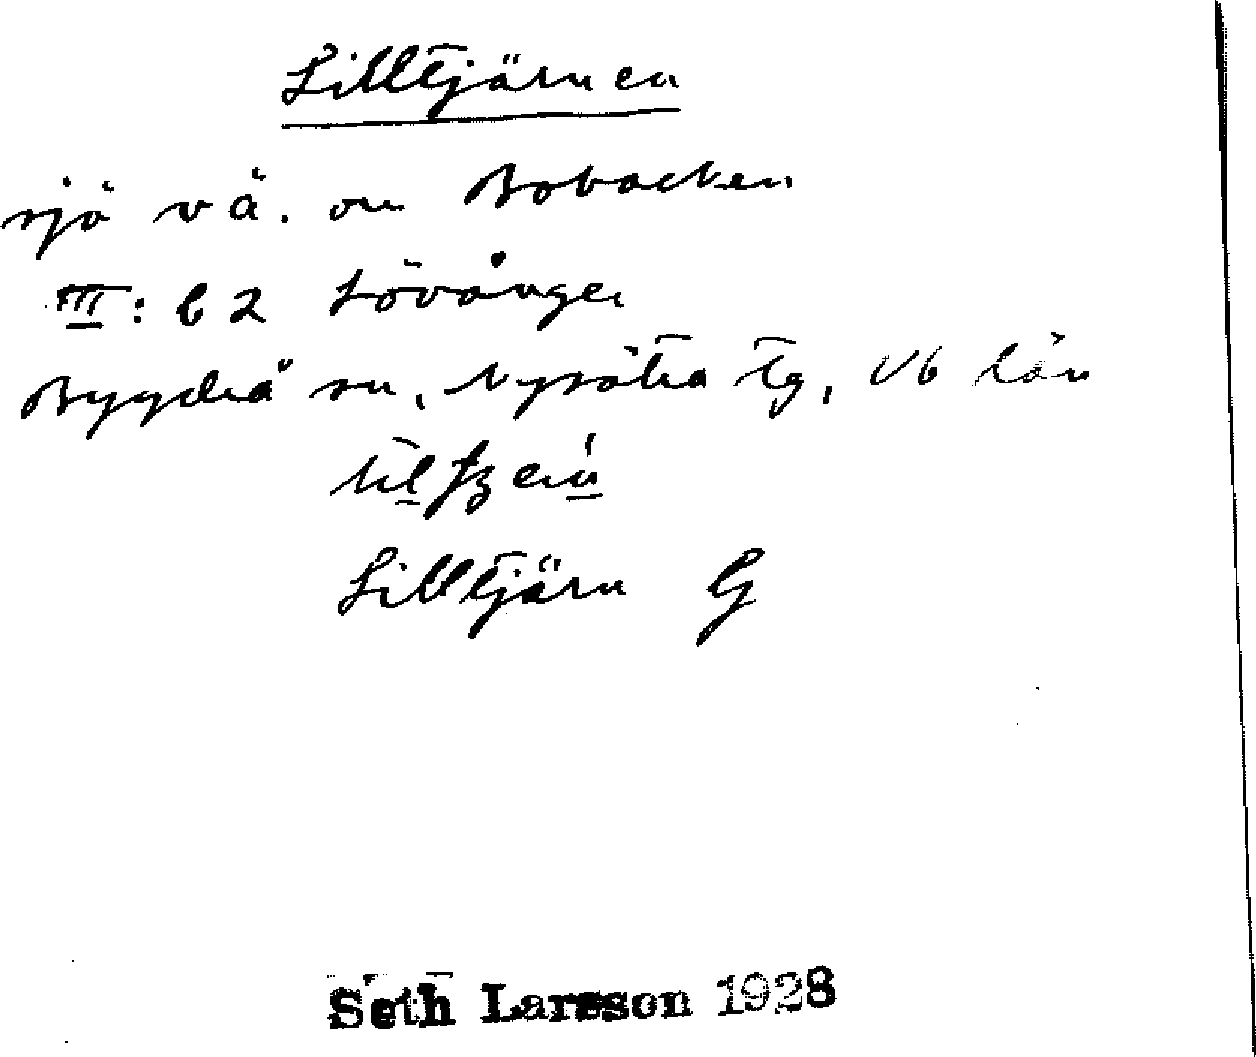 Lilltjärnen
sjö vä. om Bobacken
III: b 2 Lövånger
Bygdeå sn, Nysätra tg, Vb län
Lilltjärn G
Seth Larsson 1928